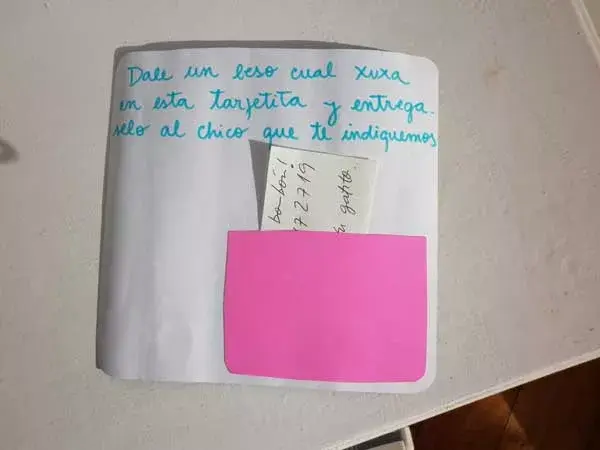 Dale un beso cual xuxa
en esta tarjetita y entrega-
selo al chico que te indiquemos
bonbón!
72719
gatito..